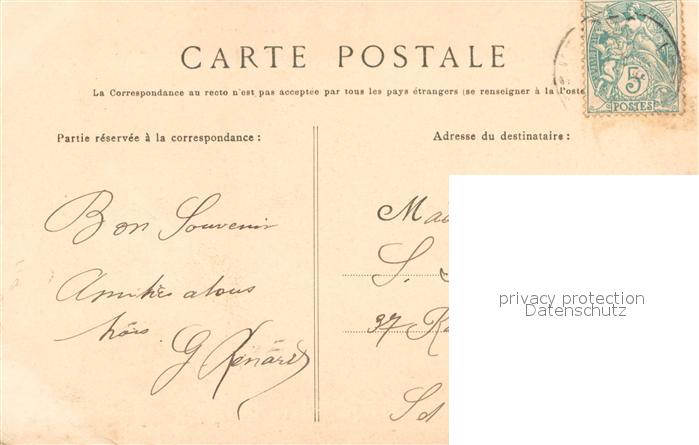 CARTE POSTALE
La Correspondance au recto n'est pas acceptée par tous les pays étrangers (se renseigner à la Poste
Partie réservée à la correspondance :
Bon Souvenir
Amitiés a tous
G Renard
Adresse du destinataire :
S.
37
5c
POSTES
privacy protection
Datenschutz